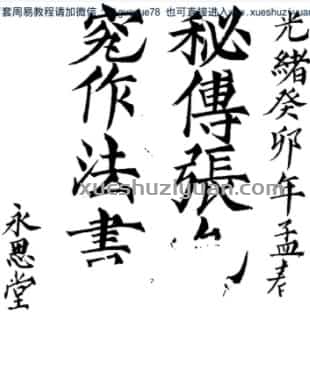 套周易教程请加微信 xue78 也可直接进入www.xueshuziyuan
光緒癸卯年孟春
秘傳張
究作法書
永思堂
xueshuziyuan.com